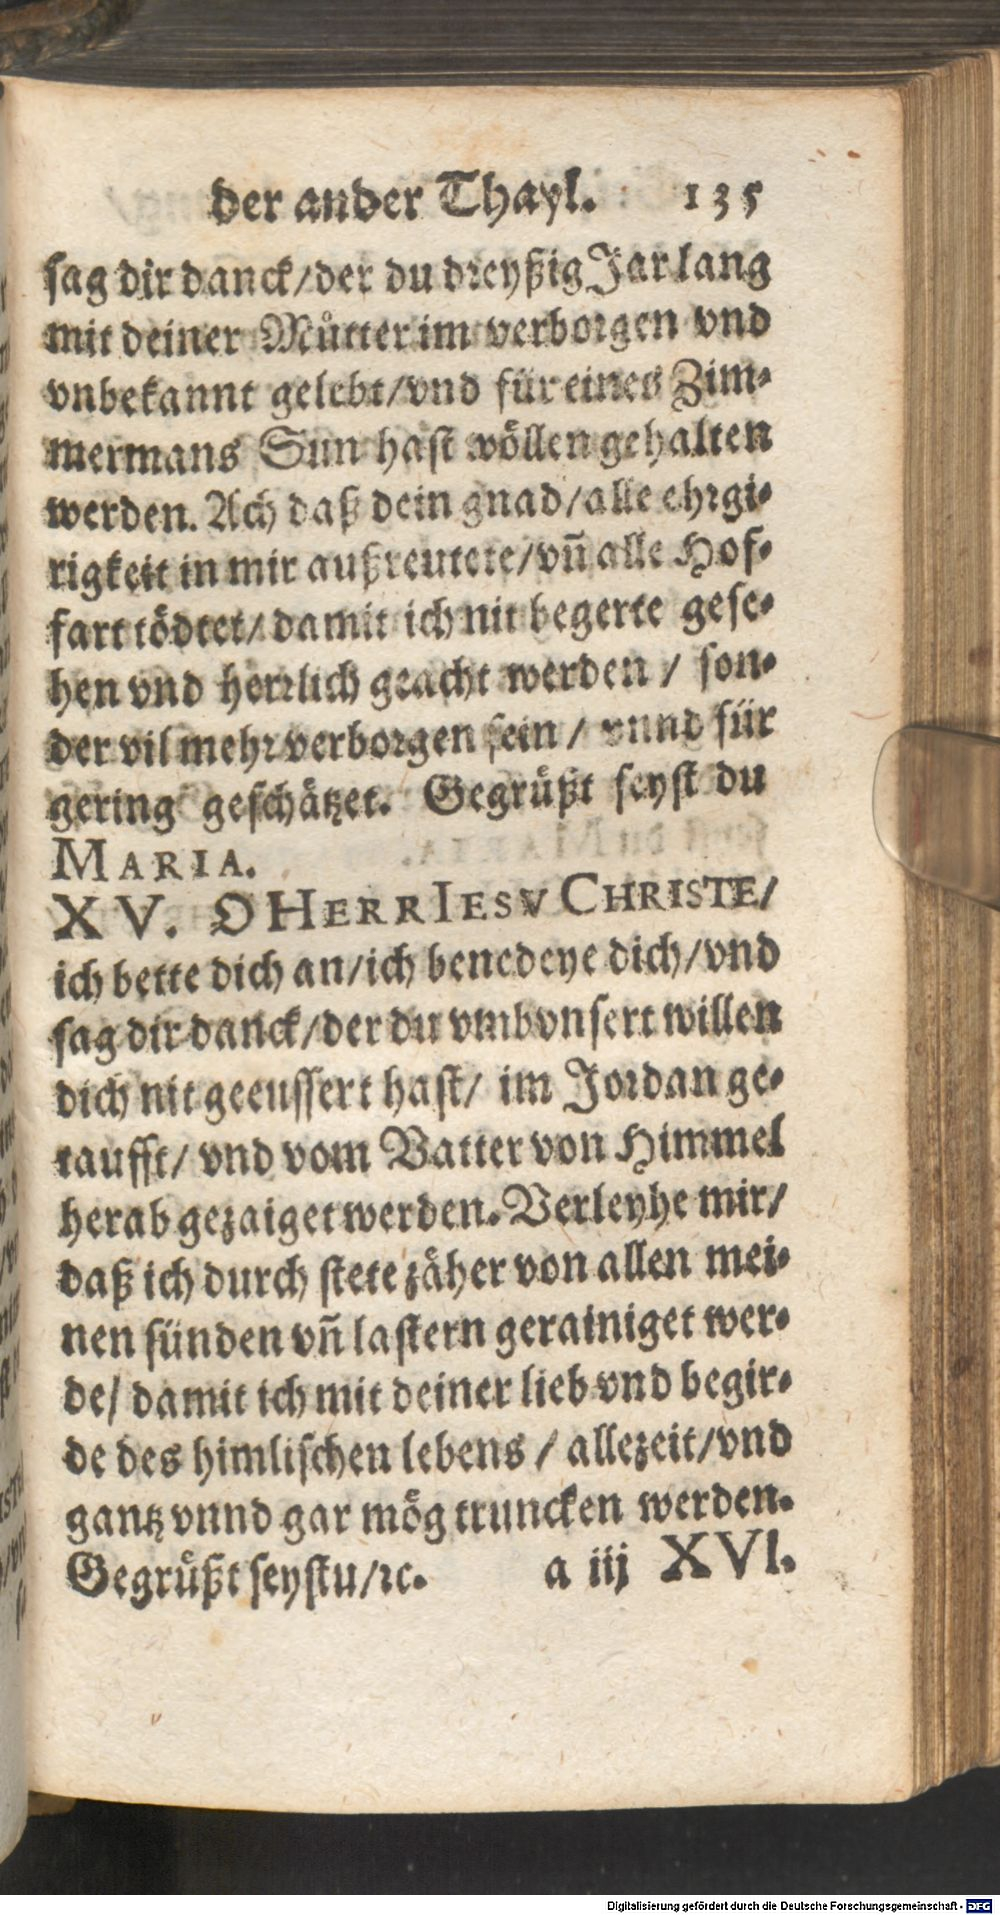 der ander Thayl. 135
sag dir danck/der du dreyßig Jar lang
mit deiner Můtter im verborgen vnd
vnbekannt gelebt/vnd für eines Zim-
mermans Sun hast wöllen gehalten
werden. Ach daß dein gnad/alle ehrgi-
rigkeit in mir außreutete/vñ alle Hof-
fart tödtet/damit ich nit begerte gese-
hen vnd herrlich geacht werden / son-
der vil mehr verborgen sein / vnnd für
gering geschätzet. Gegrüßt seyst du
MARIA.
XV. O HERR IESV CHRISTE/
ich bette dich an/ich benedeye dich/vnd
sag dir danck/der du vmb vnsert willen
dich nit geeussert hast/ im Jordan ge-
taufft/ vnd vom Vatter von Himmel
herab gezaiget werden. Verleyhe mir/
daß ich durch stete zäher von allen mei-
nen sünden vñ lastern gerainiget wer-
de/ damit ich mit deiner lieb vnd begir-
de des himlischen lebens / allezeit/vnd
gantz vnnd gar mög truncken werden.
Gegrüßt seystu/ꝛc. a iij XVI.
Digitalisierung gefördert durch die Deutsche Forschungsgemeinschaft - DFG